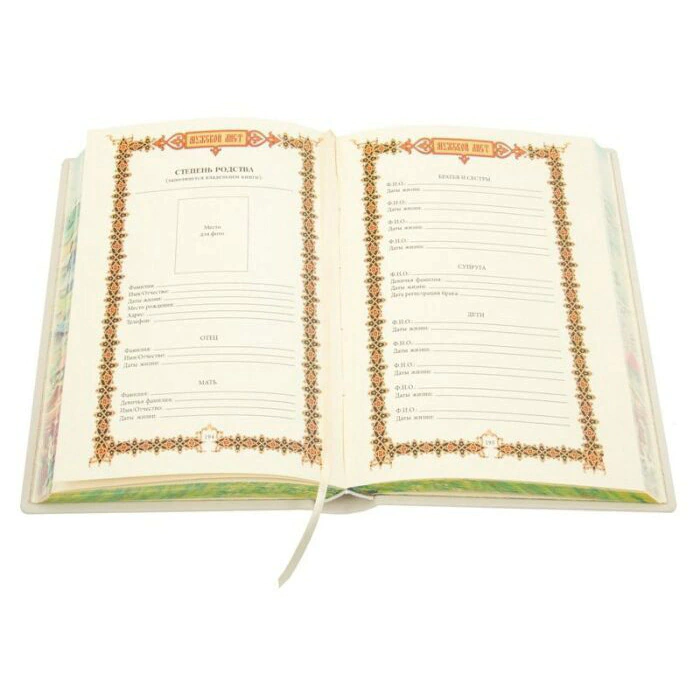 МУЖСКОЙ ЛИСТ
СТЕПЕНЬ РОДСТВА
(заполняется владельцем книги)
Место
для фото
Фамилия:
Имя/Отчество:
Даты жизни:
Место рождения:
Адрес:
Телефон:
ОТЕЦ
Фамилия:
Имя/Отчество:
Даты жизни:
МАТЬ
Фамилия:
Девичья фамилия:
Имя/Отчество:
Даты жизни:
194
МУЖСКОЙ ЛИСТ
БРАТЬЯ И СЕСТРЫ
Ф.И.О.
Даты жизни
Ф.И.О.
Даты жизни
Ф.И.О.
Даты жизни
СУПРУГА
Ф.И.О.
Девичья фамилия
Даты жизни
Дата регистрации брака
ДЕТИ
Ф.И.О.
Даты жизни
Ф.И.О.
Даты жизни
Ф.И.О.
Даты жизни
Ф.И.О.
Даты жизни
Ф.И.О.
Даты жизни
195